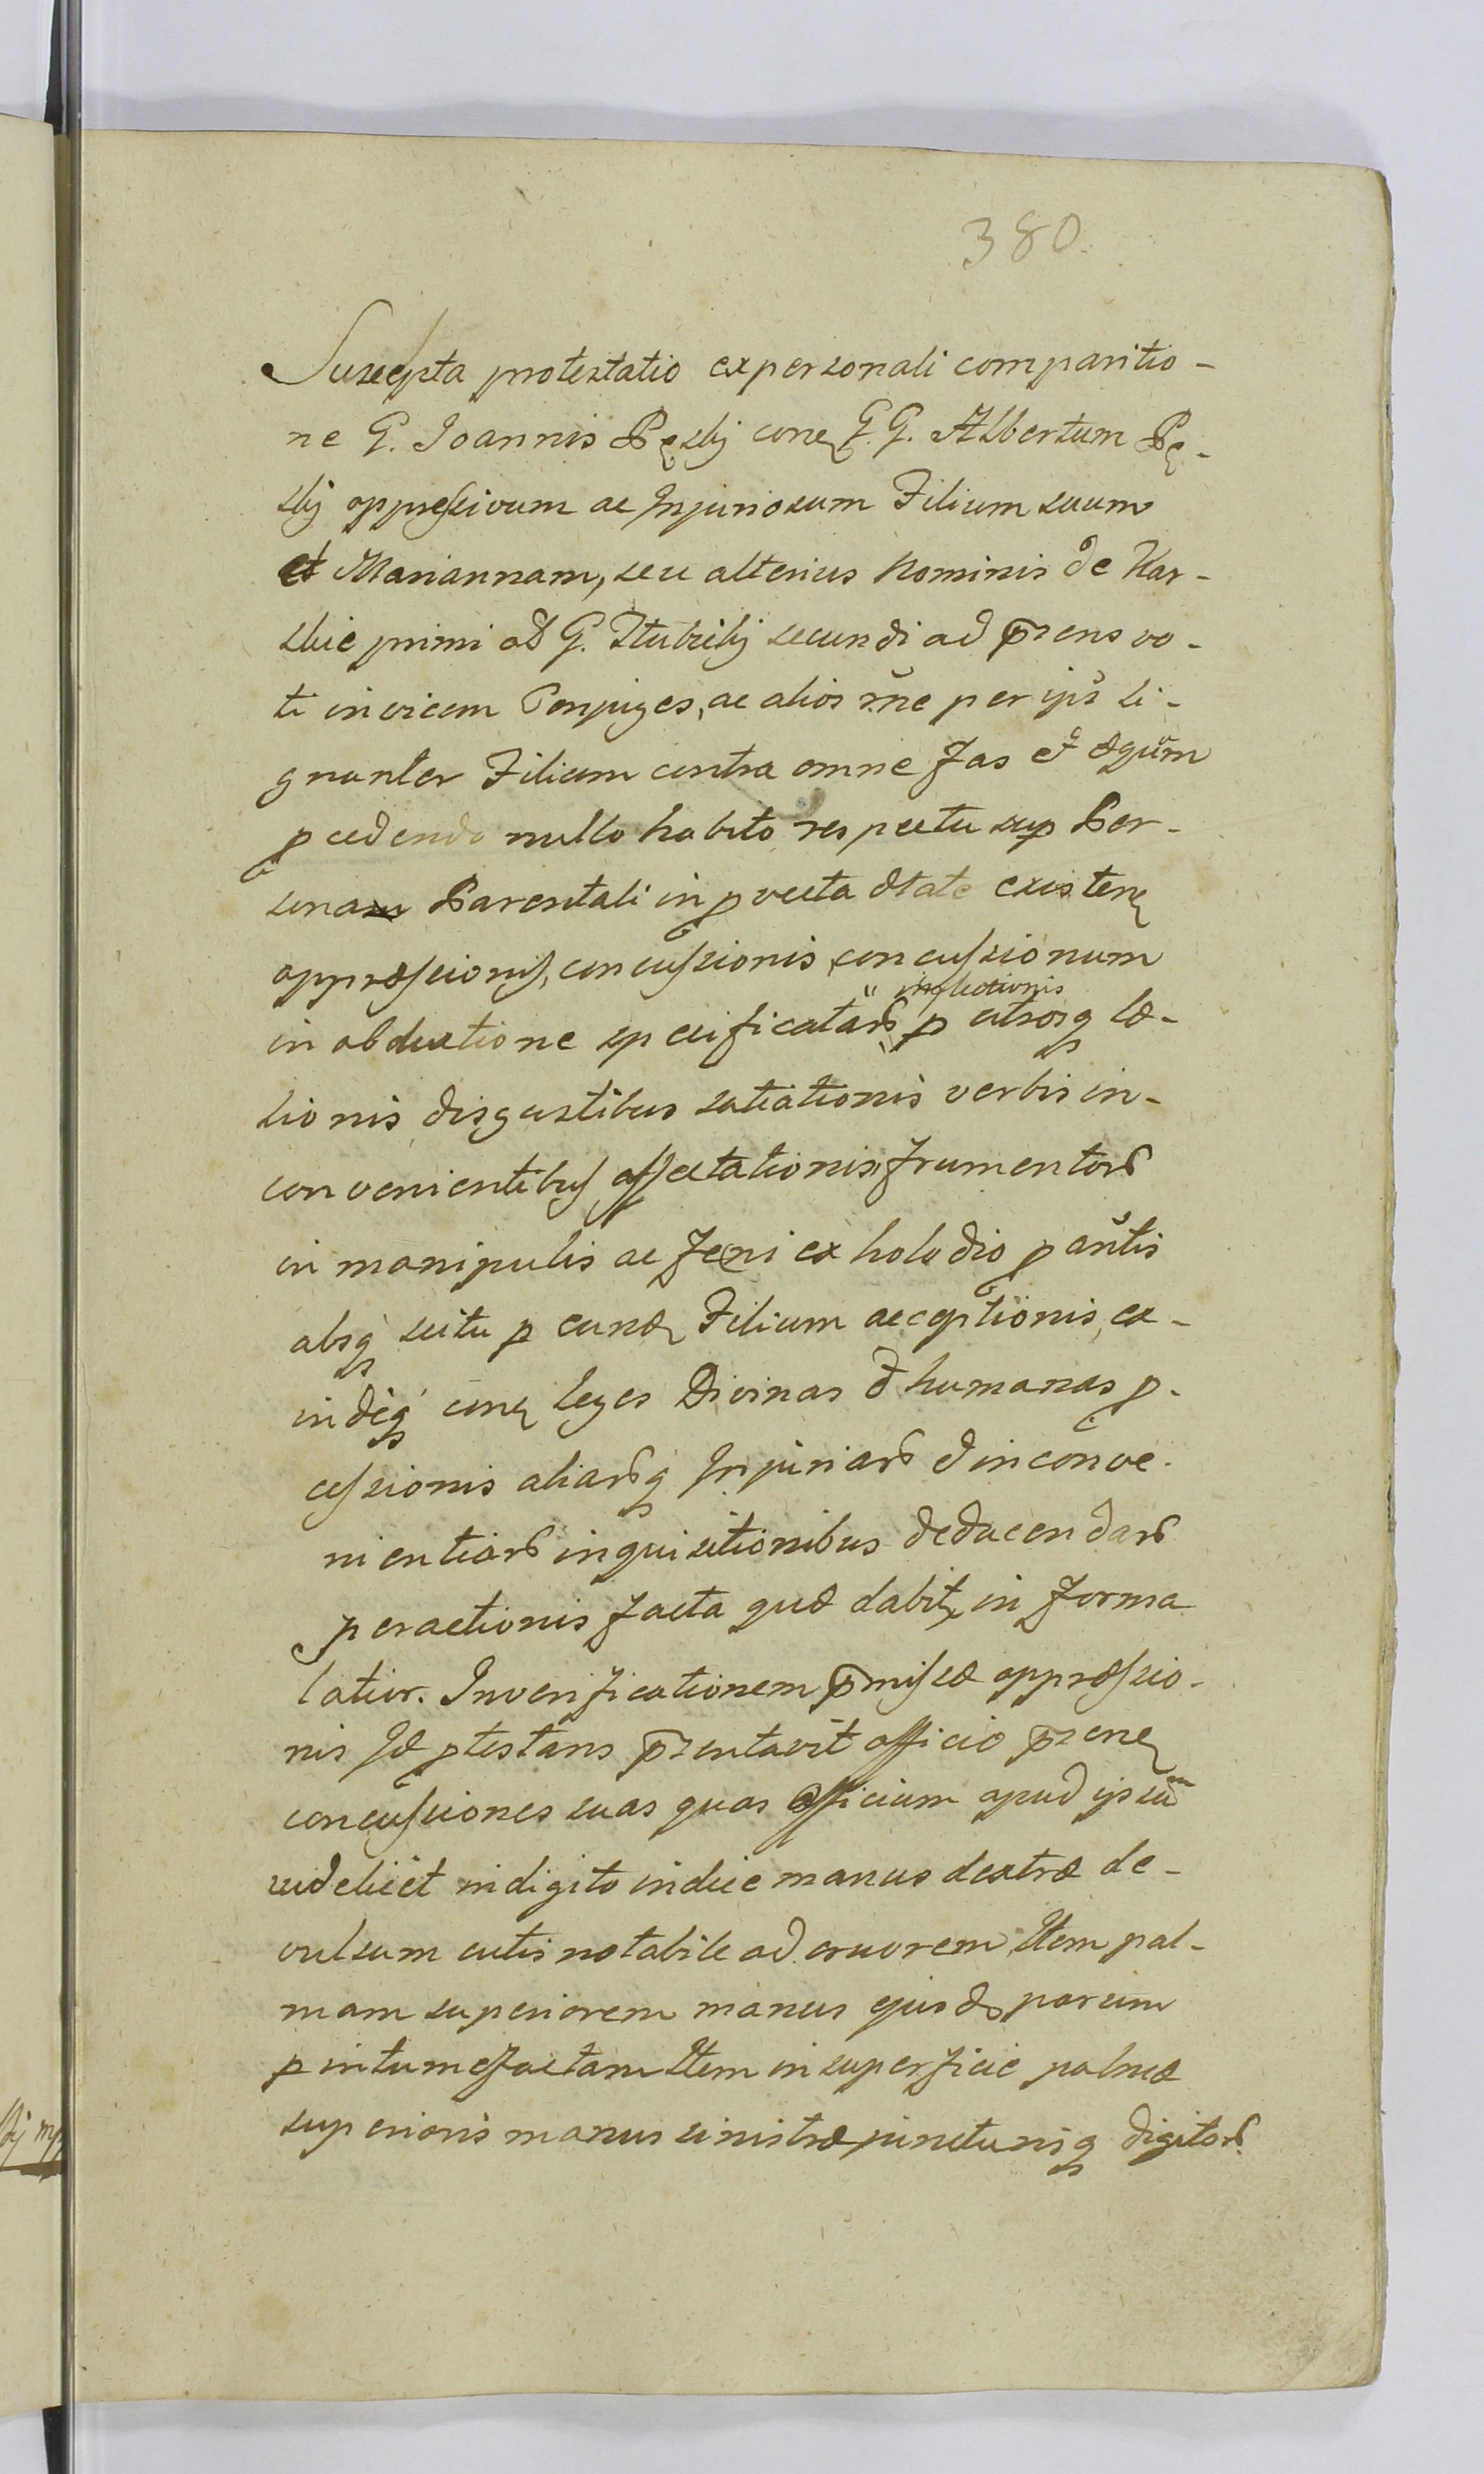 380.
Suscepta protestatio ex personali comparitio-
ne G. Joannis Pęskij conę G.G. Albertum Pę-
skij oppressivum ac Injuriosum Filium suum
et Mariannam, seu alterius Nominis de Kar-
skie primi ad G. secundi ad p̄sens vo-
ti invicem Conjuges, ac alios rñe per ips si-
gnanter Filium contra omne Fas et æquum
pcedendo nullo habito respectu sup Per-
sonam Parentali in pvecta ætate existenę
oppræssionis, concussionis, concussionum
inflictionis
in obductione specificatar, p utrosq læ-
sionis disgustibus satiationis verbis in-
convenientibus affectationis, frumentor
in manipulis ac feni ex holodio pañtis
absq scitu p eundę Filium acceptionis, ex-
indeq conę leges Divinas et humanas p-
cessionis aliarq Injuriar et inconve-
nientiar inquisitionibus deducendar
peractionis facta quæ dabit in forma
latior. In verificationem p̄missæ oppræssio-
nis Id ptestans p̄sentavit officio p̄senę
concussiones suas quas Officium apud ipsum
videlicet in digito indice manus dextræ de-
vulsum cutis notabile ad cruorem, Item pal-
mam superiorem manus ejusdę parum
p intumefactam Item in superficie palmæ
superioris manus sinistræ juncturisq digitor.
skij mp